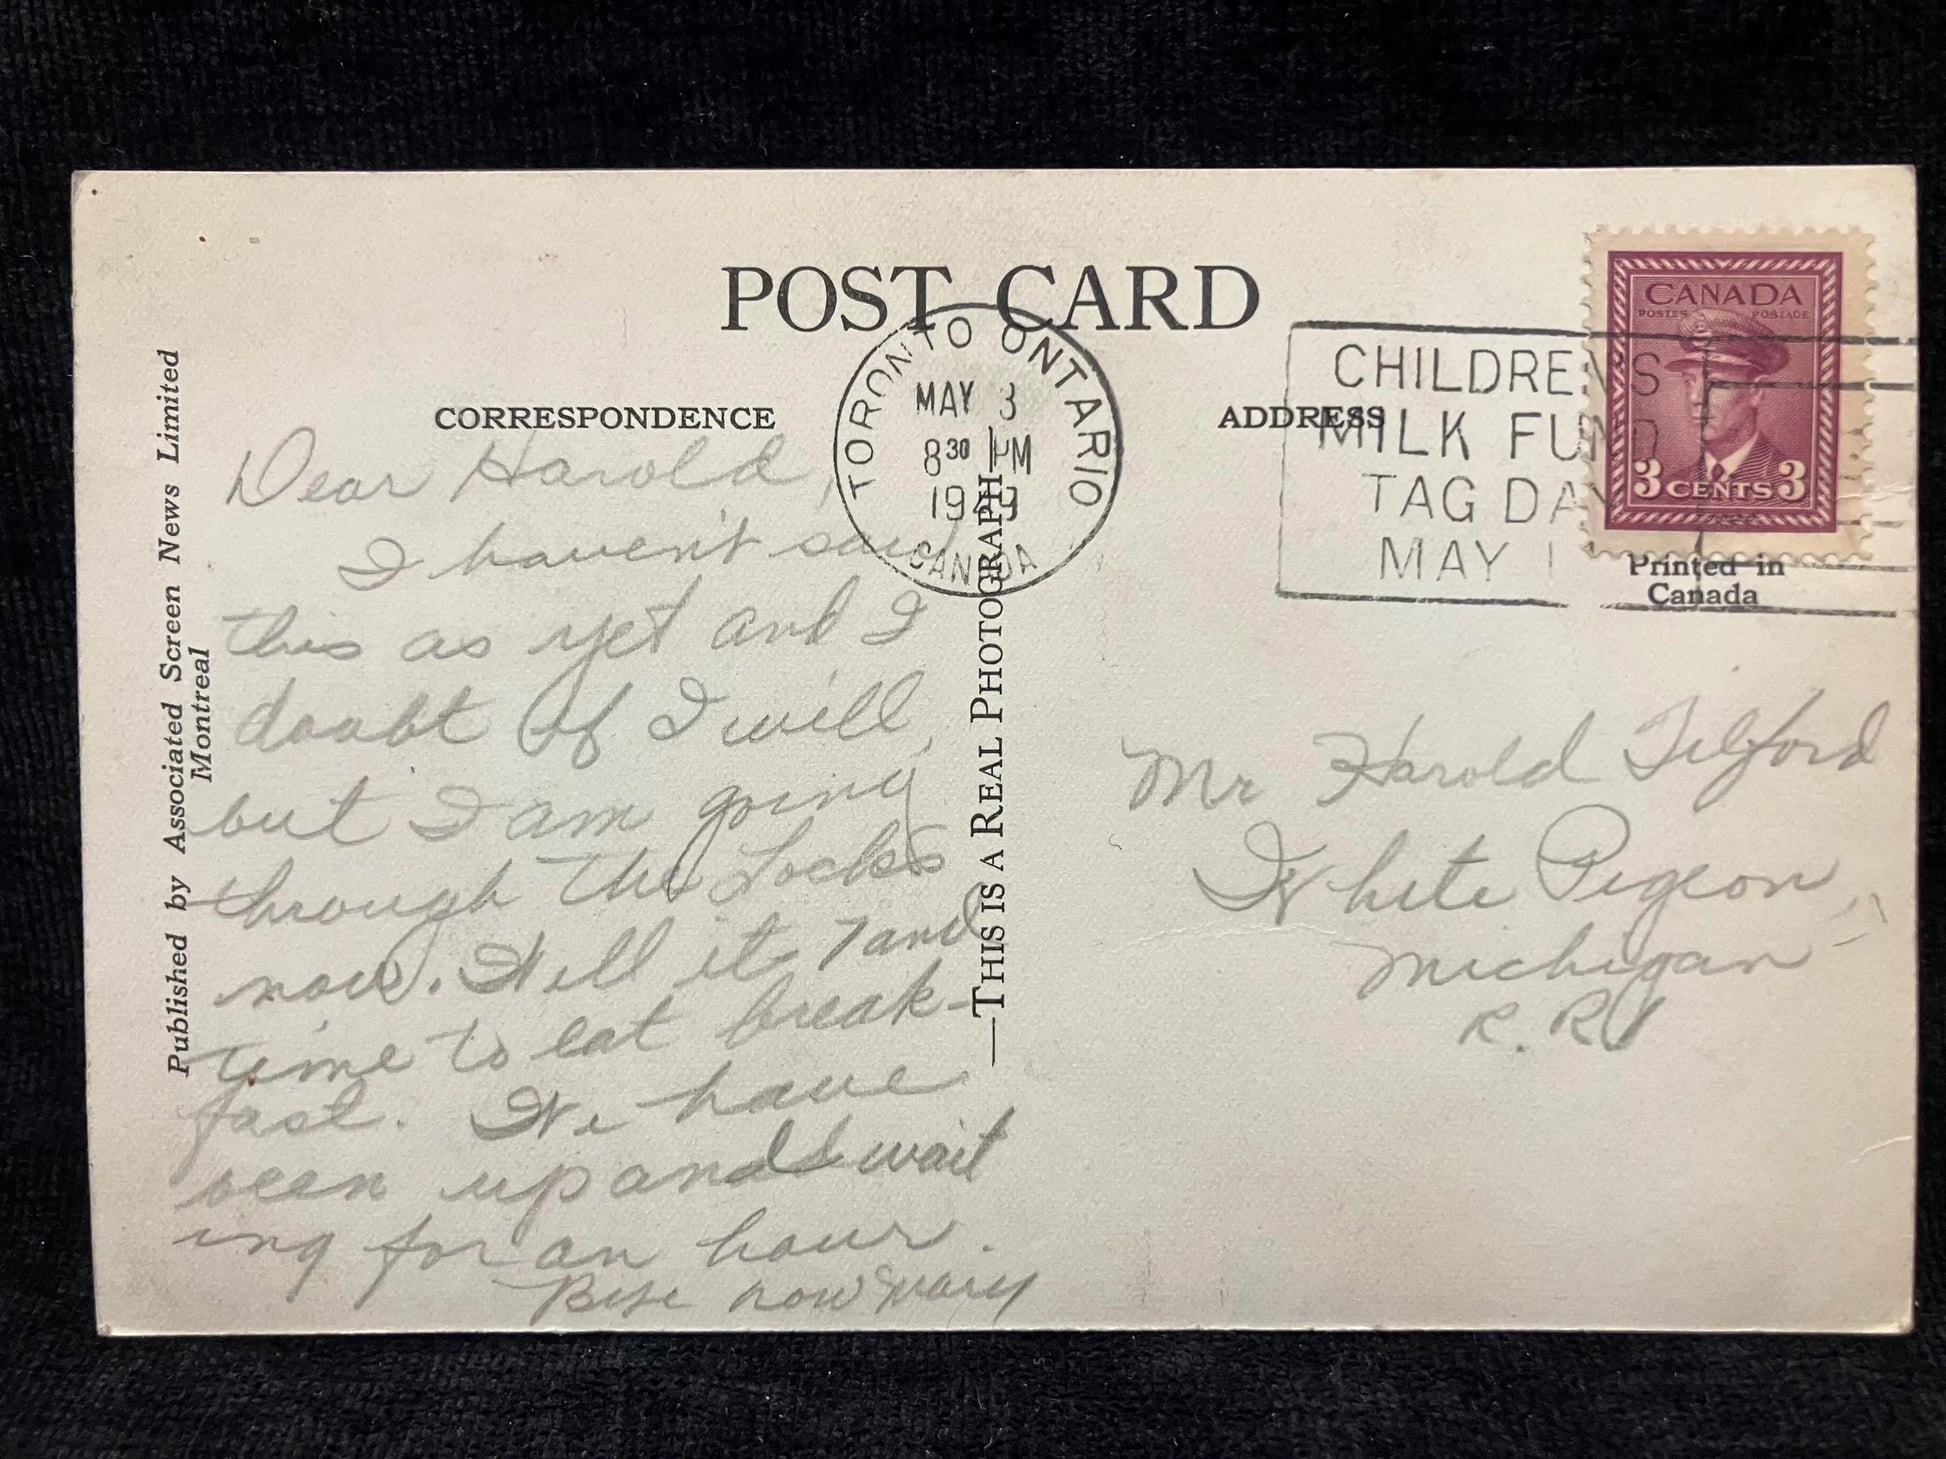 POST CARD
CORRESPONDENCE
ADDRESS
TORONTO ONTARIO
MAY 3
8 30 PM
1949
CANADA
CHILDREN'S
MILK FUND
TAG DAY
MAY
CANADA
POSTES POSTAGE
3 CENTS 3
Printed in
Canada
Published by Associated Screen News Limited
Montreal
—THIS IS A REAL PHOTOGRAPH—
Dear Harold,
I haven't saw
this as yet and I
doubt if I will,
but I am going
through the Locks
now. Well its 7 and
time to eat break-
fast. We have
been up and wait
ing for an hour.
now Mary
Mr Harold Tilford
White Pigeon,
Michigan
R. R. 1